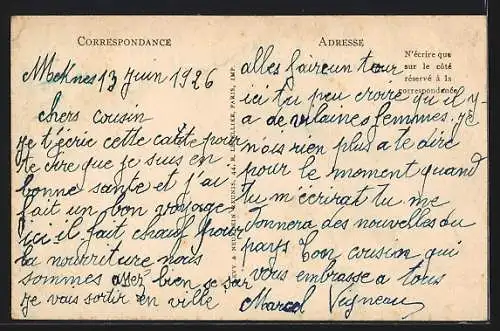 CORRESPONDANCE
Meknes 13 juin 1926
chers cousin
je t'écrie cette carte pour
te dire que je suis en
bonne santé et j'ai
fait un bon voyage
ici il fait chauf pour
la nourriture nous
sommes assez bien se soir
je vais sortir en ville
LEVY & NEURDEIN REUNIS, 44, R. LETELLIER, PARIS, IMP.
ADRESSE
N'écrire que
sur le côté
réservé à la
correspondance
alles faire un tour
ici tu peu croire qu'il y
a de vilaines femmes. je
n'ois rien plus a te dire
pour le moment quand
tu m'écrirat tu me
donnera des nouvelles du
pays ton cousin qui
vous embrasse a tous
Marcel Vigneau